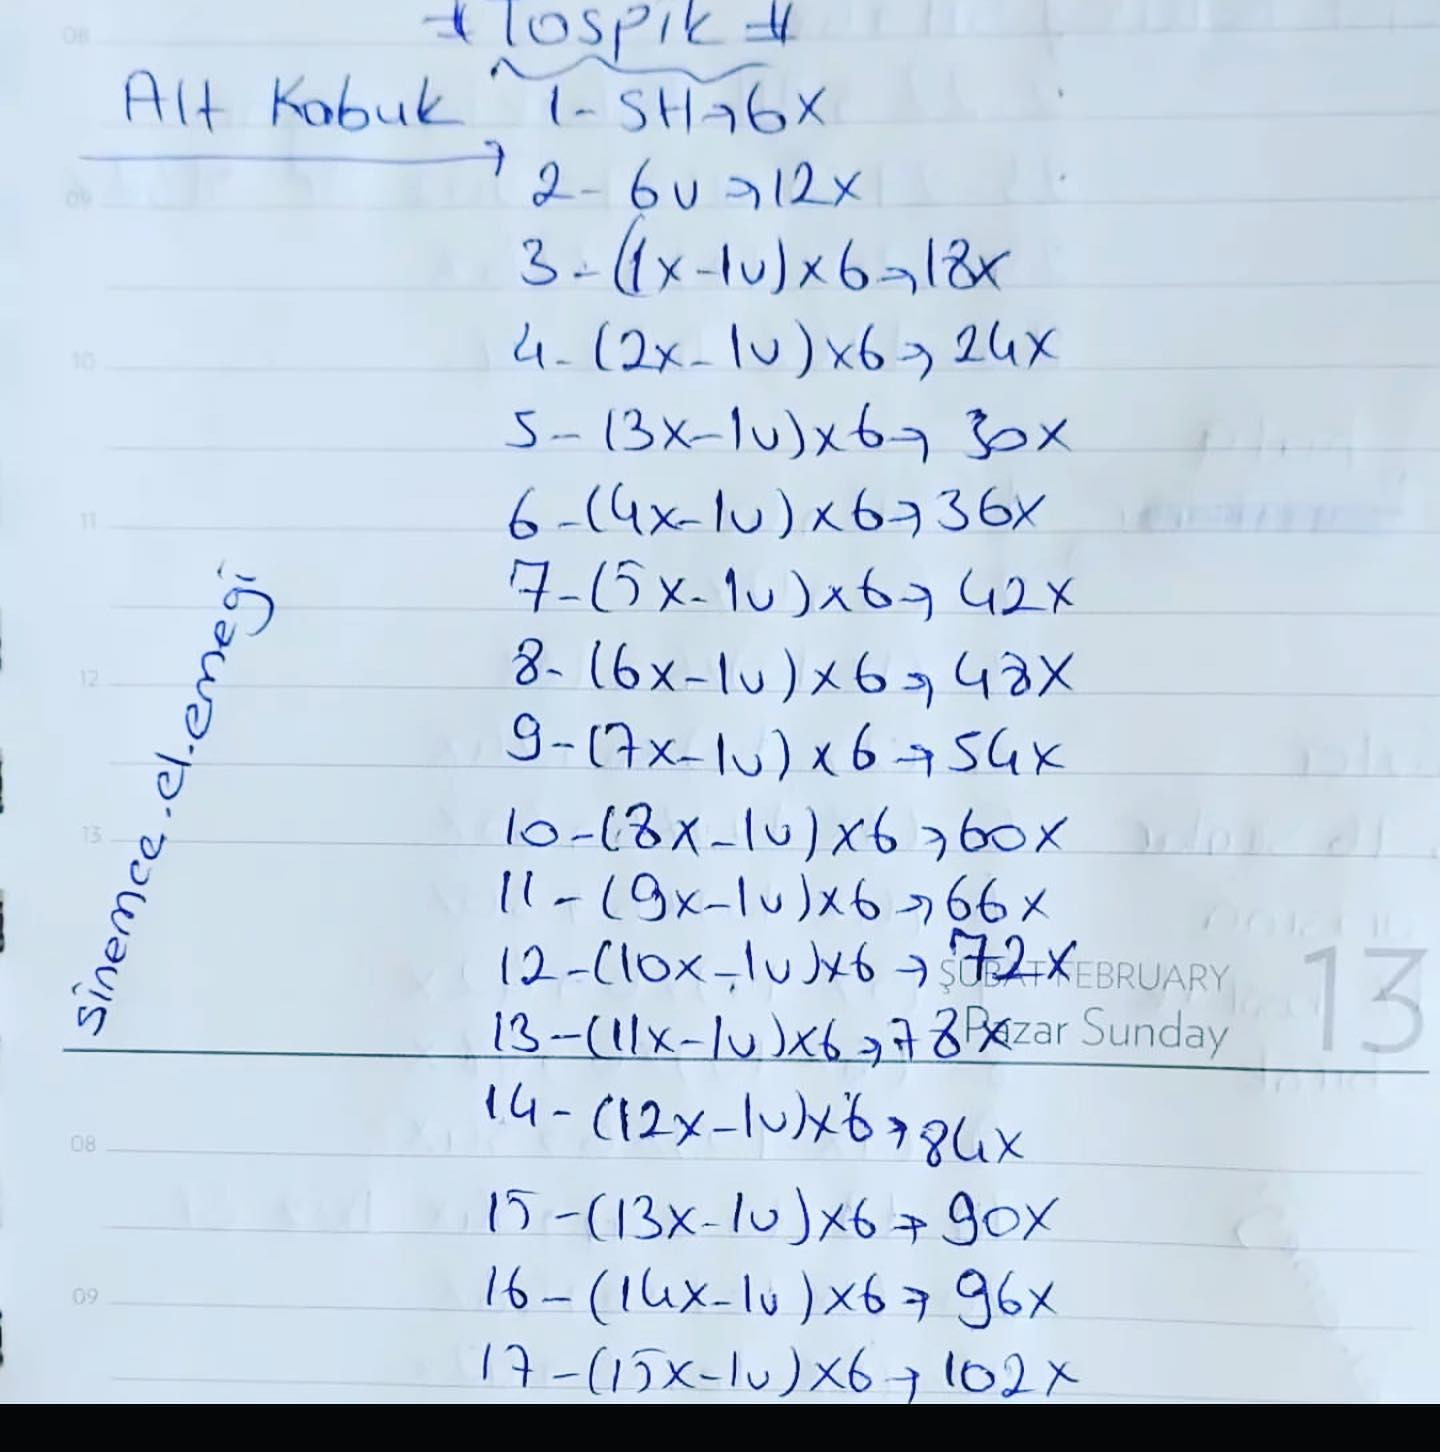 # Tospik #
Alt Kabuk 1- SH→6x
2- 6v→12x
3-(1x-1v)x6→18x
4-(2x-1v)x6→24x
5-(3x-1v)x6→30x
6-(4x-1v)x6→36x
7-(5x-1v)x6→42x
8-(6x-1v)x6→48x
9-(7x-1v)x6→54x
10-(8x-1v)x6→60x
11-(9x-1v)x6→66x
12-(10x-1v)x6→72x
13-(11x-1v)x6→78x
14-(12x-1v)x6→84x
15-(13x-1v)x6→90x
16-(14x-1v)x6→96x
17-(15x-1v)x6→102x
sinemce.el.emegi
08
09
10
11
12
13
ŞUBAT FEBRUARY
Pazar Sunday
13
08
09